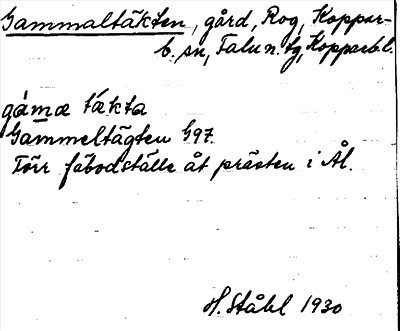 Gammaltäkten, gård, Rog, Koppar-
b. sn, Falu n. tg, Kopparb l.
gámæ tækta
Gammeltägten G97.
Förr fäbodställe åt prästen i Ål.
H. Ståhl 1930